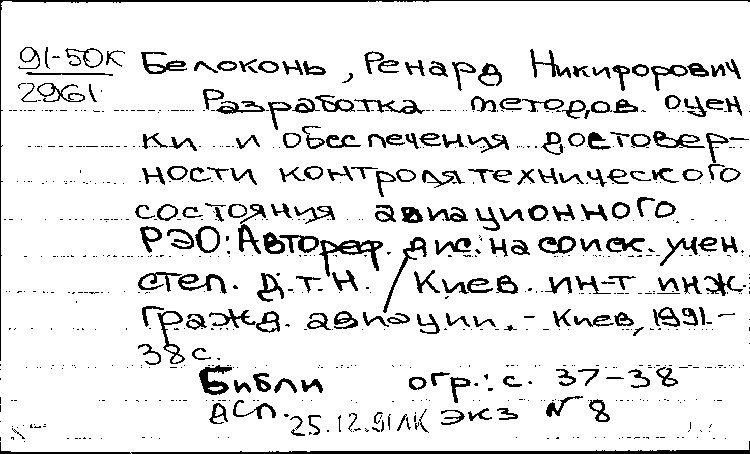 91-50К Белоконь, Ренард Никифорович
2961 Разработка методов оцен
ки и обеспечения достовер-
ности контроля технического
состояния авиационного
РЭО: Автореф. дис. на соиск. учен.
степ. д.т.н. / Киев. ин-т инж.
гражд. авиации. - Киев, 1991. -
38 с.
Библи огр.: с. 37-38
ДСП. 25.12.91ЛК экз № 8